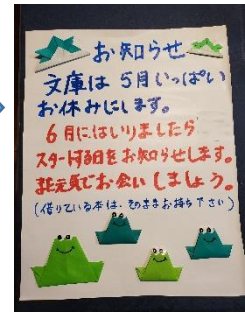 お知らせ
文庫は 5月いっぱい
お休みにします。
6月にはいりましたら
スタートする日をお知らせします。
お元気でお会いしましょう。
(借りている本は、そのままお持ち下さい)